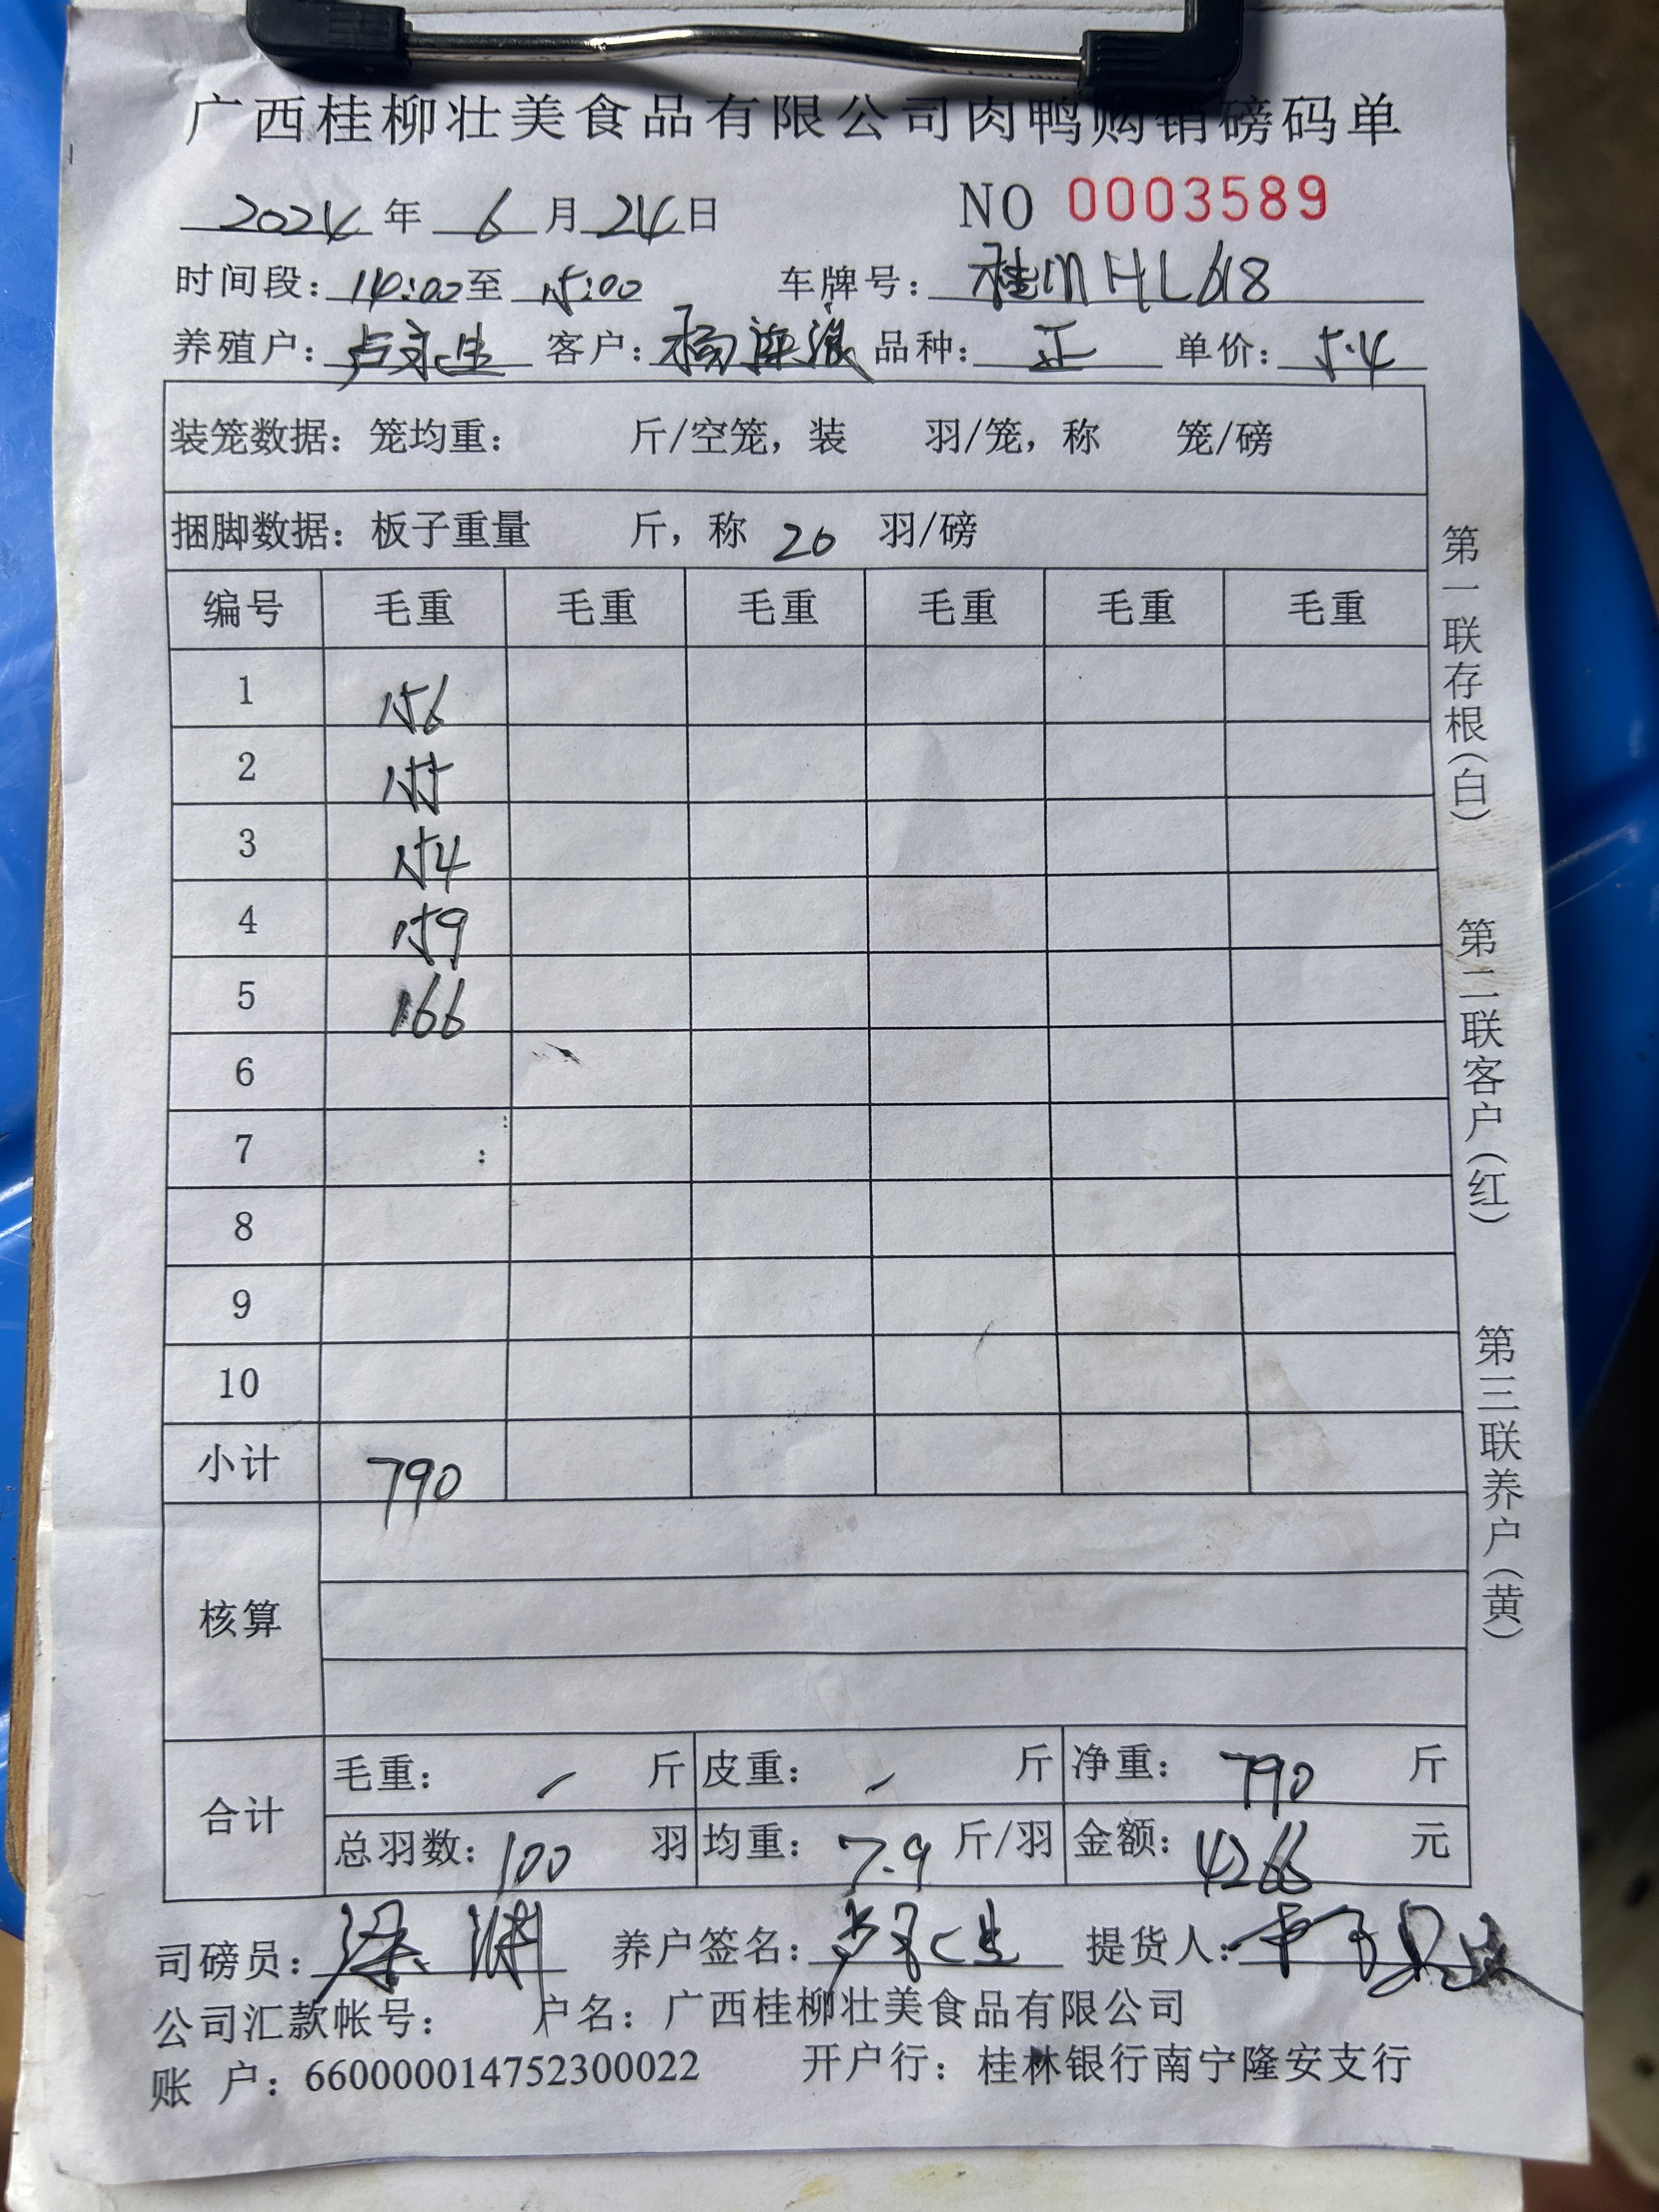 广西桂柳壮美食品有限公司肉鸭购销磅码单
2024年 6 月 24 日 NO 0003589
时间段：14:00 至 15:00 车牌号：桂 HL618
养殖户：卢永生 客户：杨 品种：正 单价：5.4
装笼数据：笼均重： 斤/空笼，装 羽/笼，称 笼/磅
捆脚数据：板子重量 斤，称 20 羽/磅
编号 毛重 毛重 毛重 毛重 毛重 毛重
1 156
2 155
3 154
4 159
5 166
6
7
8
9
10
小计 790
核算
合计
毛重： / 斤 皮重： / 斤 净重： 790 斤
总羽数：100 羽 均重：7.9 斤/羽 金额：4266 元
司磅员：梁 养户签名： 提货人：
公司汇款帐号： 户名：广西桂柳壮美食品有限公司
账 户：660000014752300022 开户行：桂林银行南宁隆安支行
第一联存根（白） 第二联客户（红） 第三联养户（黄）